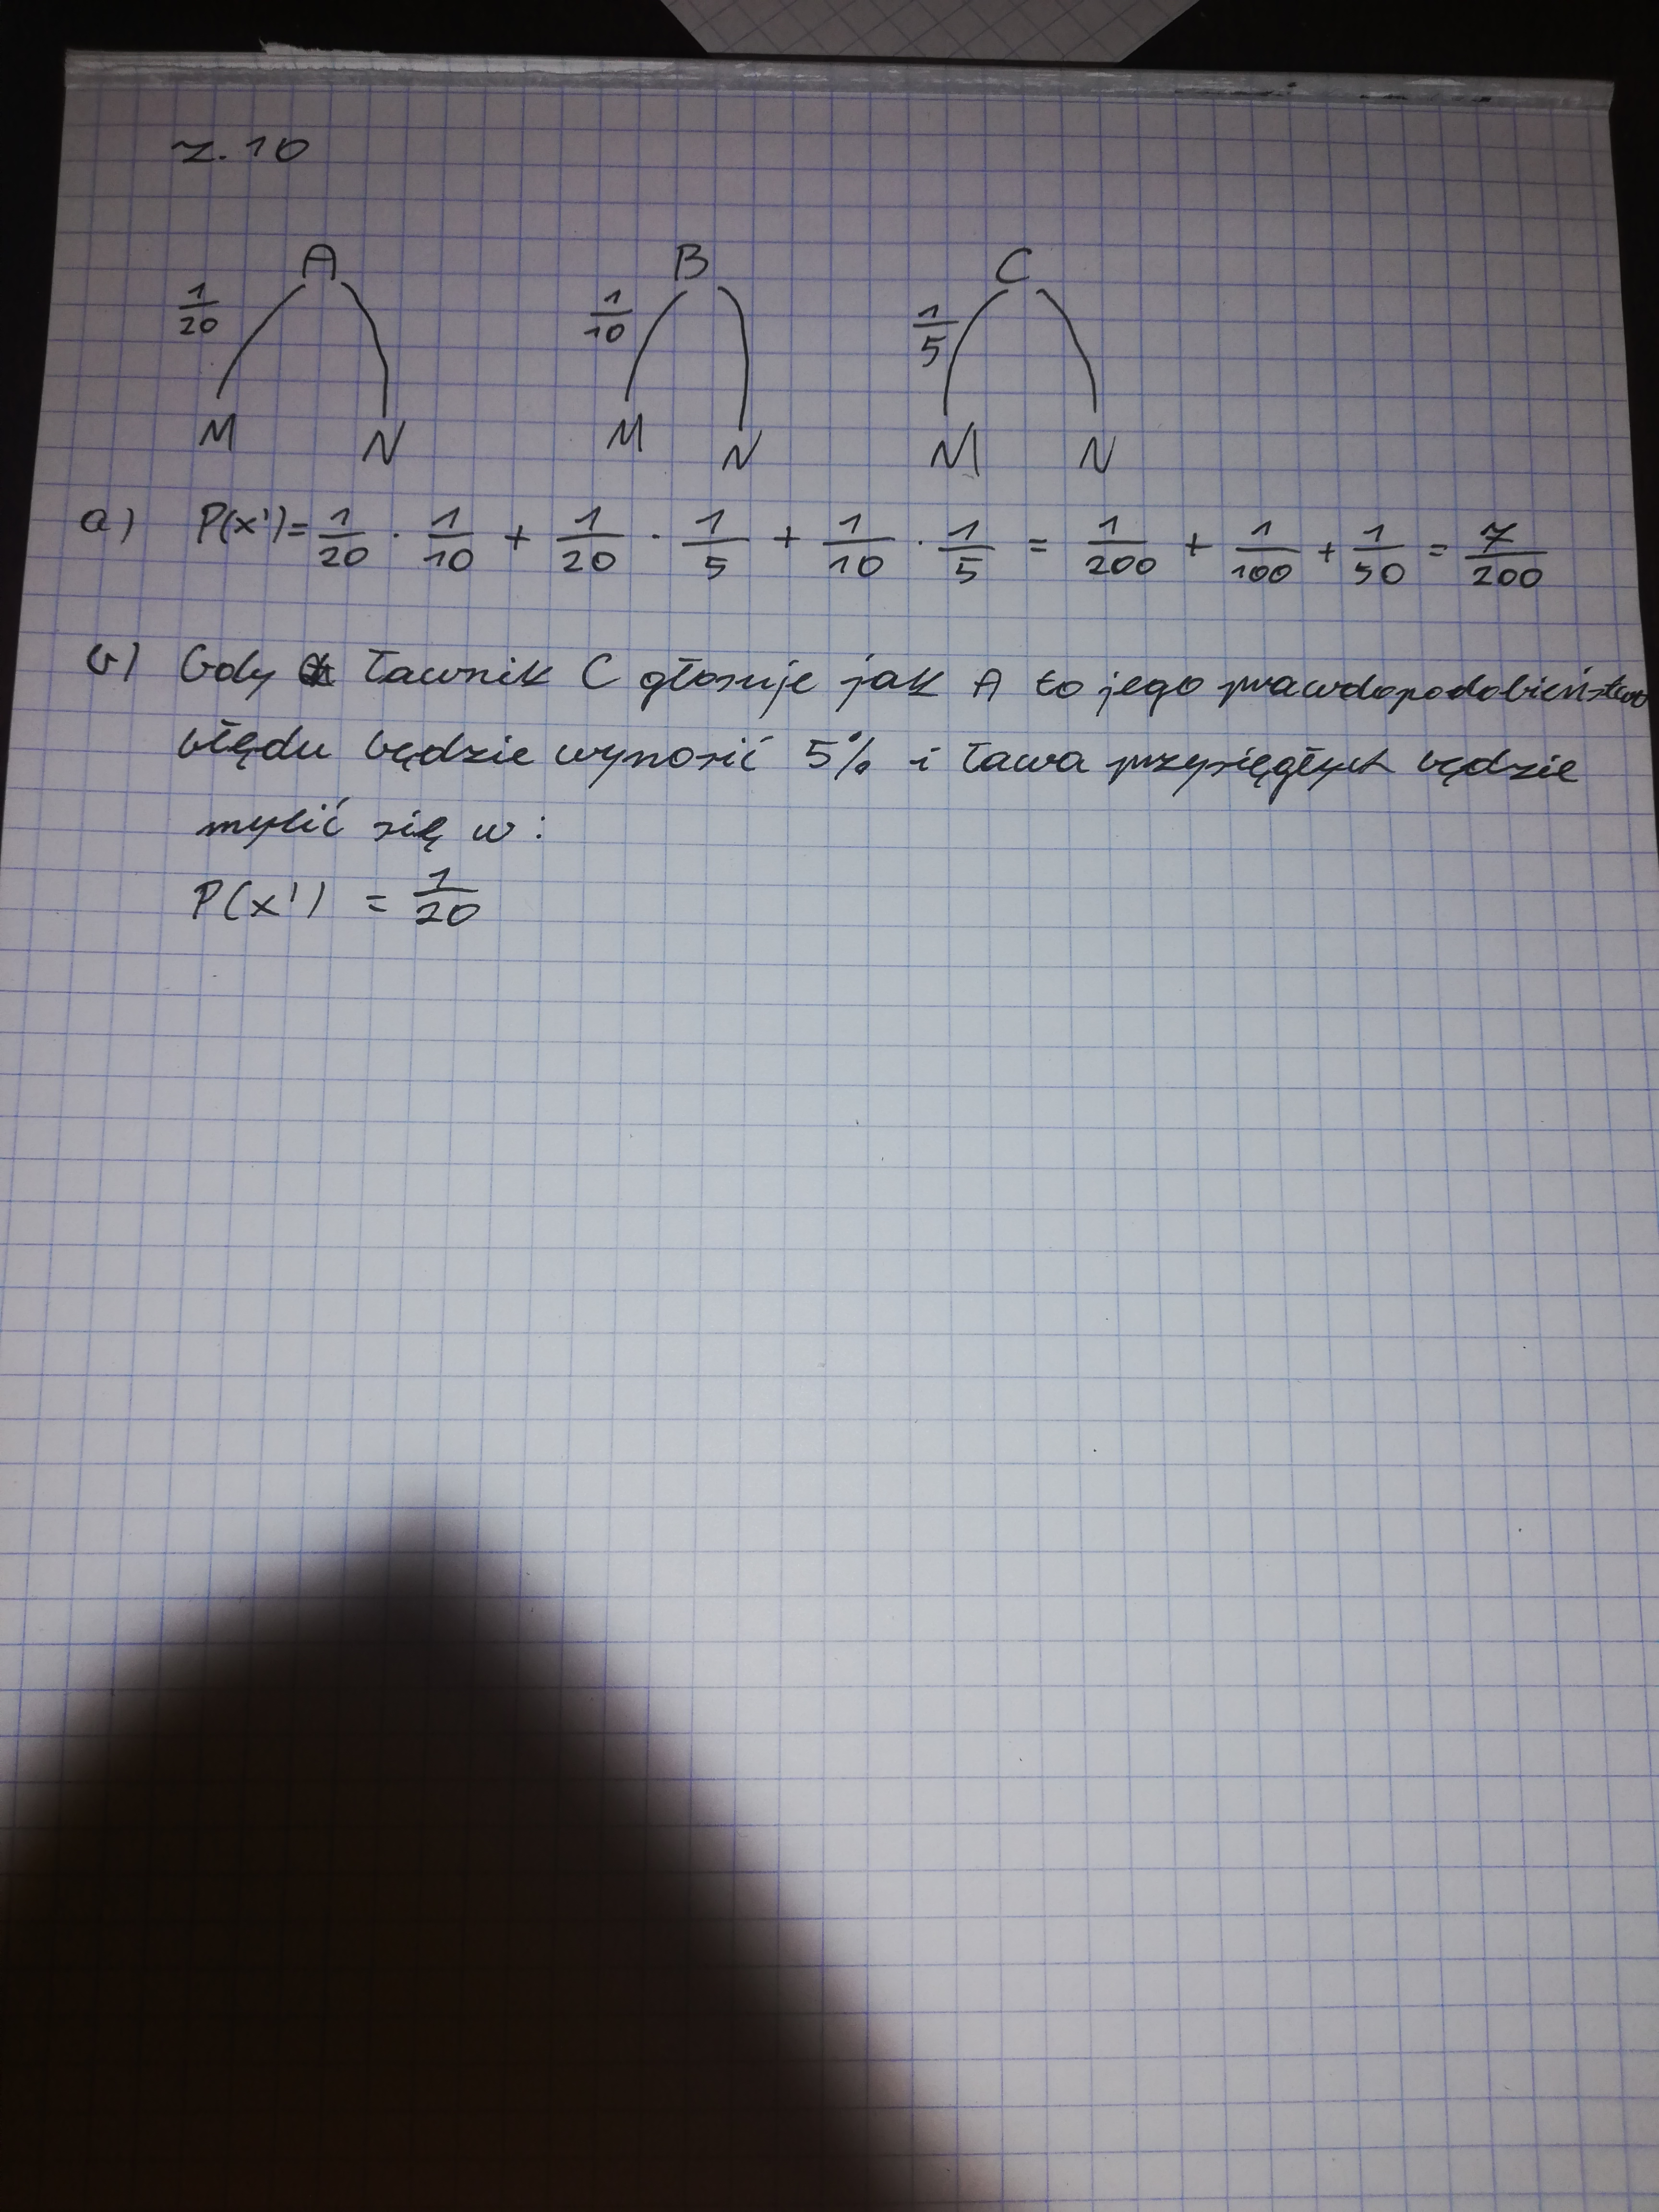 z. 10
A B C
1/20 1/10 1/5
M N M N M N
a) P(x') = 1/20 · 1/10 + 1/20 · 1/5 + 1/10 · 1/5 = 1/200 + 1/100 + 1/50 = 7/200
b) Gdy ławnik C głosuje jak A to jego prawdopodobieństwo
błędu będzie wynosić 5% i ława przysięgłych będzie
mylić się w:
P(x') = 1/20